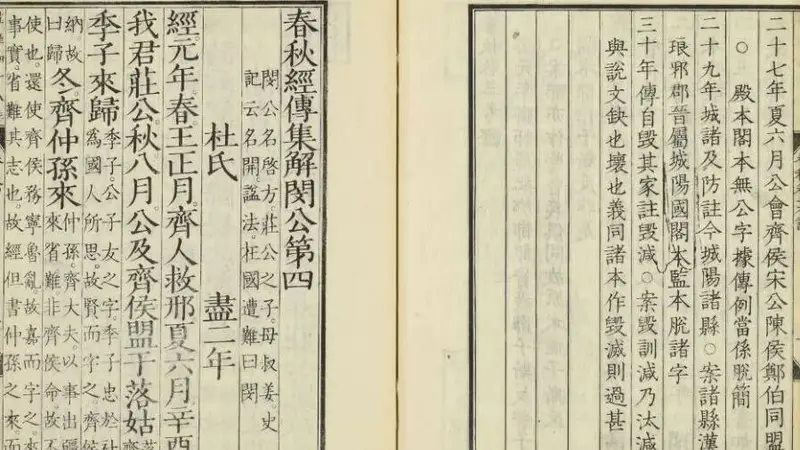 二十七年夏六月公會齊侯宋公陳侯鄭伯同盟
○殿本閣本無公字據傳例當係脫簡
二十九年城諸及防註今城陽諸縣○案諸縣漢
琅邪郡晉屬城陽國閣本監本脫諸字
三十年傳自毀其家註毀減○案毀訓減乃汰減
與說文缺也壞也義同諸本作毀滅則過甚
春秋經傳集解閔公第四
閔公名啓方莊公之子母叔姜史
記云名開諡法在國遭難曰閔
杜氏 盡二年
經元年。春王正月。齊人救邢夏六月辛酉
我君莊公。秋八月。公及齊侯盟于落姑
季子來歸 季子公子友之字季子忠於社
爲國人所思故賢而字之齊侯
納故
曰歸 冬。齊仲孫來 仲孫齊大夫以事出疆
來省難非齊侯命故不
使也還使齊侯務寧魯亂故嘉而字之來
事實省難其志也故經但書仲孫之來而